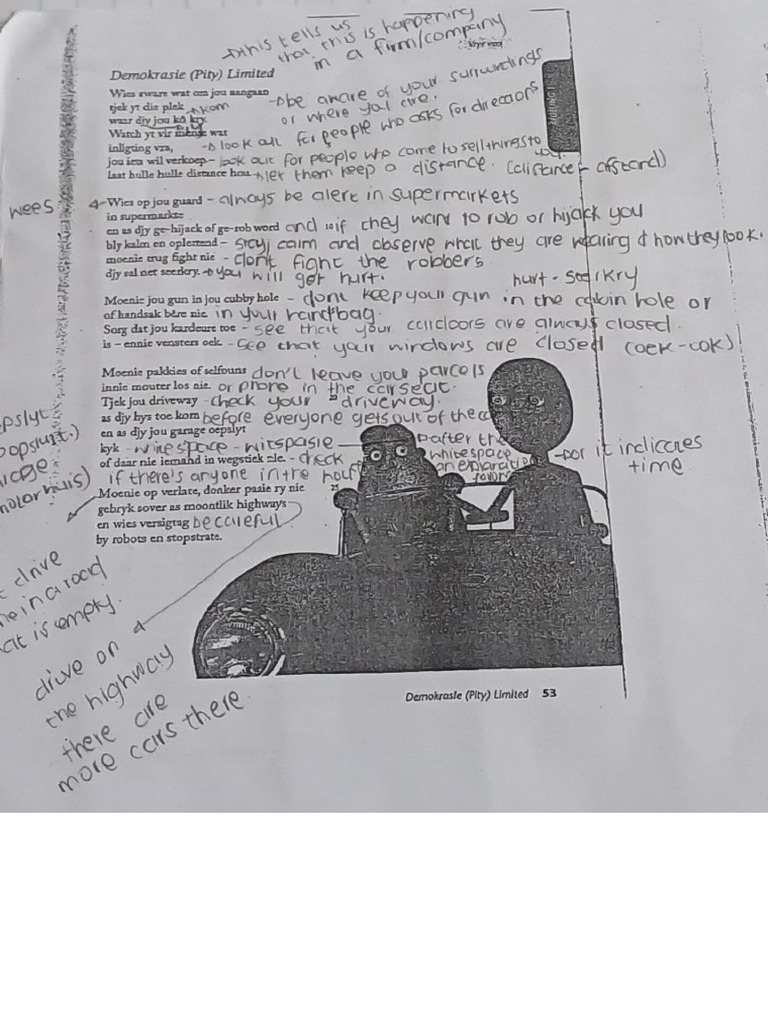 →this tells us
that this is happening
in a firm/company
Demokrasie (Pity) Limited
Wies eware wat om jou aangaan
tjek yt die plek →kom - →be aware of your surroundings
waar djy jou kô kry. or where you are.
Watch yt vir mense wat
inligting vra, -→ look out for people who asks for directions
jou iets wil verkoop – look out for people who come to sell things to you.
laat hulle hulle distance hou. →let them keep a distance. (distance – afstand)
wees
Wies op jou guard – always be alert in supermarkets
in supermarkte
en as djy ge-hijack of ge-rob word and 10 if they want to rob or hijack you
bly kalm en oplettend – stay calm and observe what they are wearing & how they look.
moenie trug fight nie – dont fight the robbers
djy sal net seerkry. →you will get hurt. hurt - seerkry
Moenie jou gun in jou cubby hole – dont keep your gun in the cabin hole or
of handsak bêre nie in your handbag.
Sorg dat jou kardeure toe – see that your cardoors are always closed.
is – ennie vensters oek. – see that your windows are closed (oek – ook)
Moenie pakkies of selfouns don't leave your parcels
innie mouter los nie. or phone in the carseat.
Tjek jou driveway – check your 20 driveway.
as djy hys toe kom before everyone gets out of the
en as djy jou garage oepslyt
kyk – witespace – witspasie after the whitespace
of daar nie iemand in wegstiek nie. – check
if there's anyone in the
–dot it indicates
time
Moenie op verlate, donker paaie ry nie 25
gebryk sover as moontlik highways
en wies versigtag be careful
by robots en stopstrate.
drive
in a road
it is empty.
drive on
the highway
there are
more cars there.
Demokrasie (Pity) Limited 53